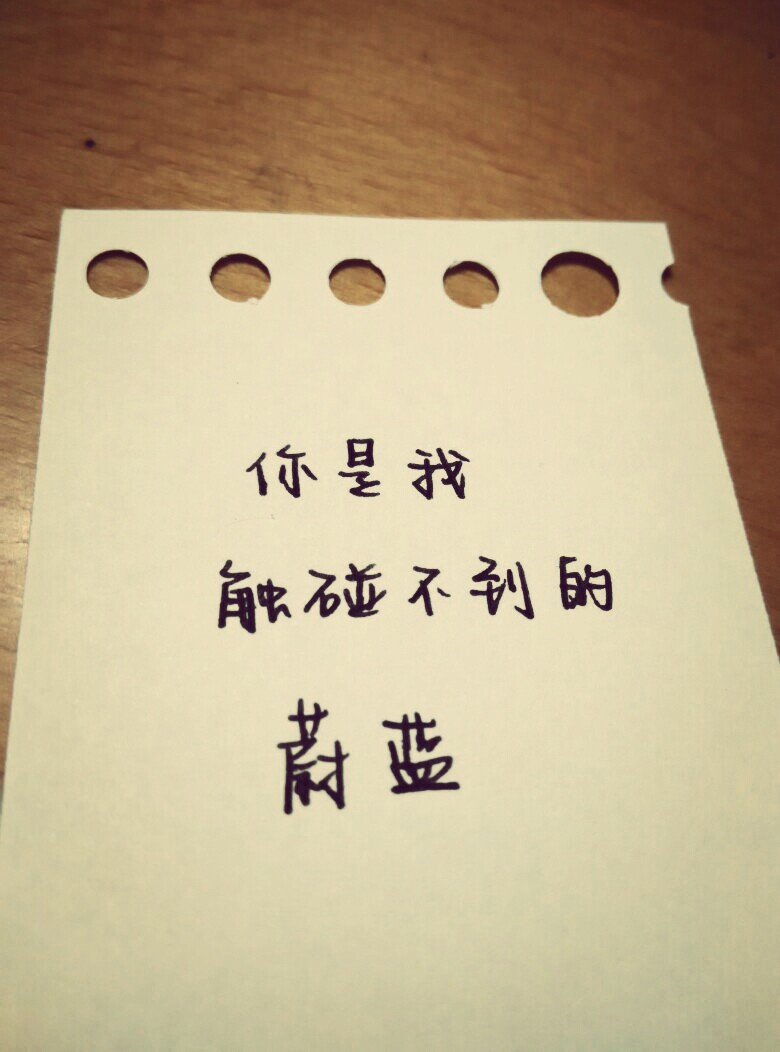 你是我
触碰不到的
蔚蓝